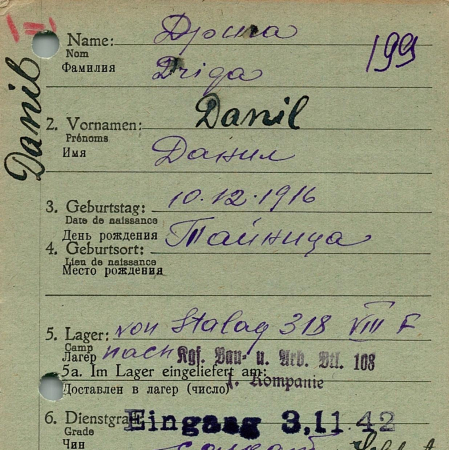 Name: Дрига
Nom
Фамилия Driga
199
Danil
2. Vornamen: Danil
Prénoms
Имя Данил
3. Geburtstag: 10.12.1916
Date de naissance
День рождения
4. Geburtsort: Тайница
Lieu de naissance
Место рождения
5. Lager: von Stalag 318 VIII F
Camp
Лагерь nach Kgf. Bau- u. Arb. Btl. 108
5a. Im Lager eingeliefert am: 1. Kompanie
Доставлен в лагерь (число)
6. Dienstgrad Eingang 3.11.42
Grade
Чин